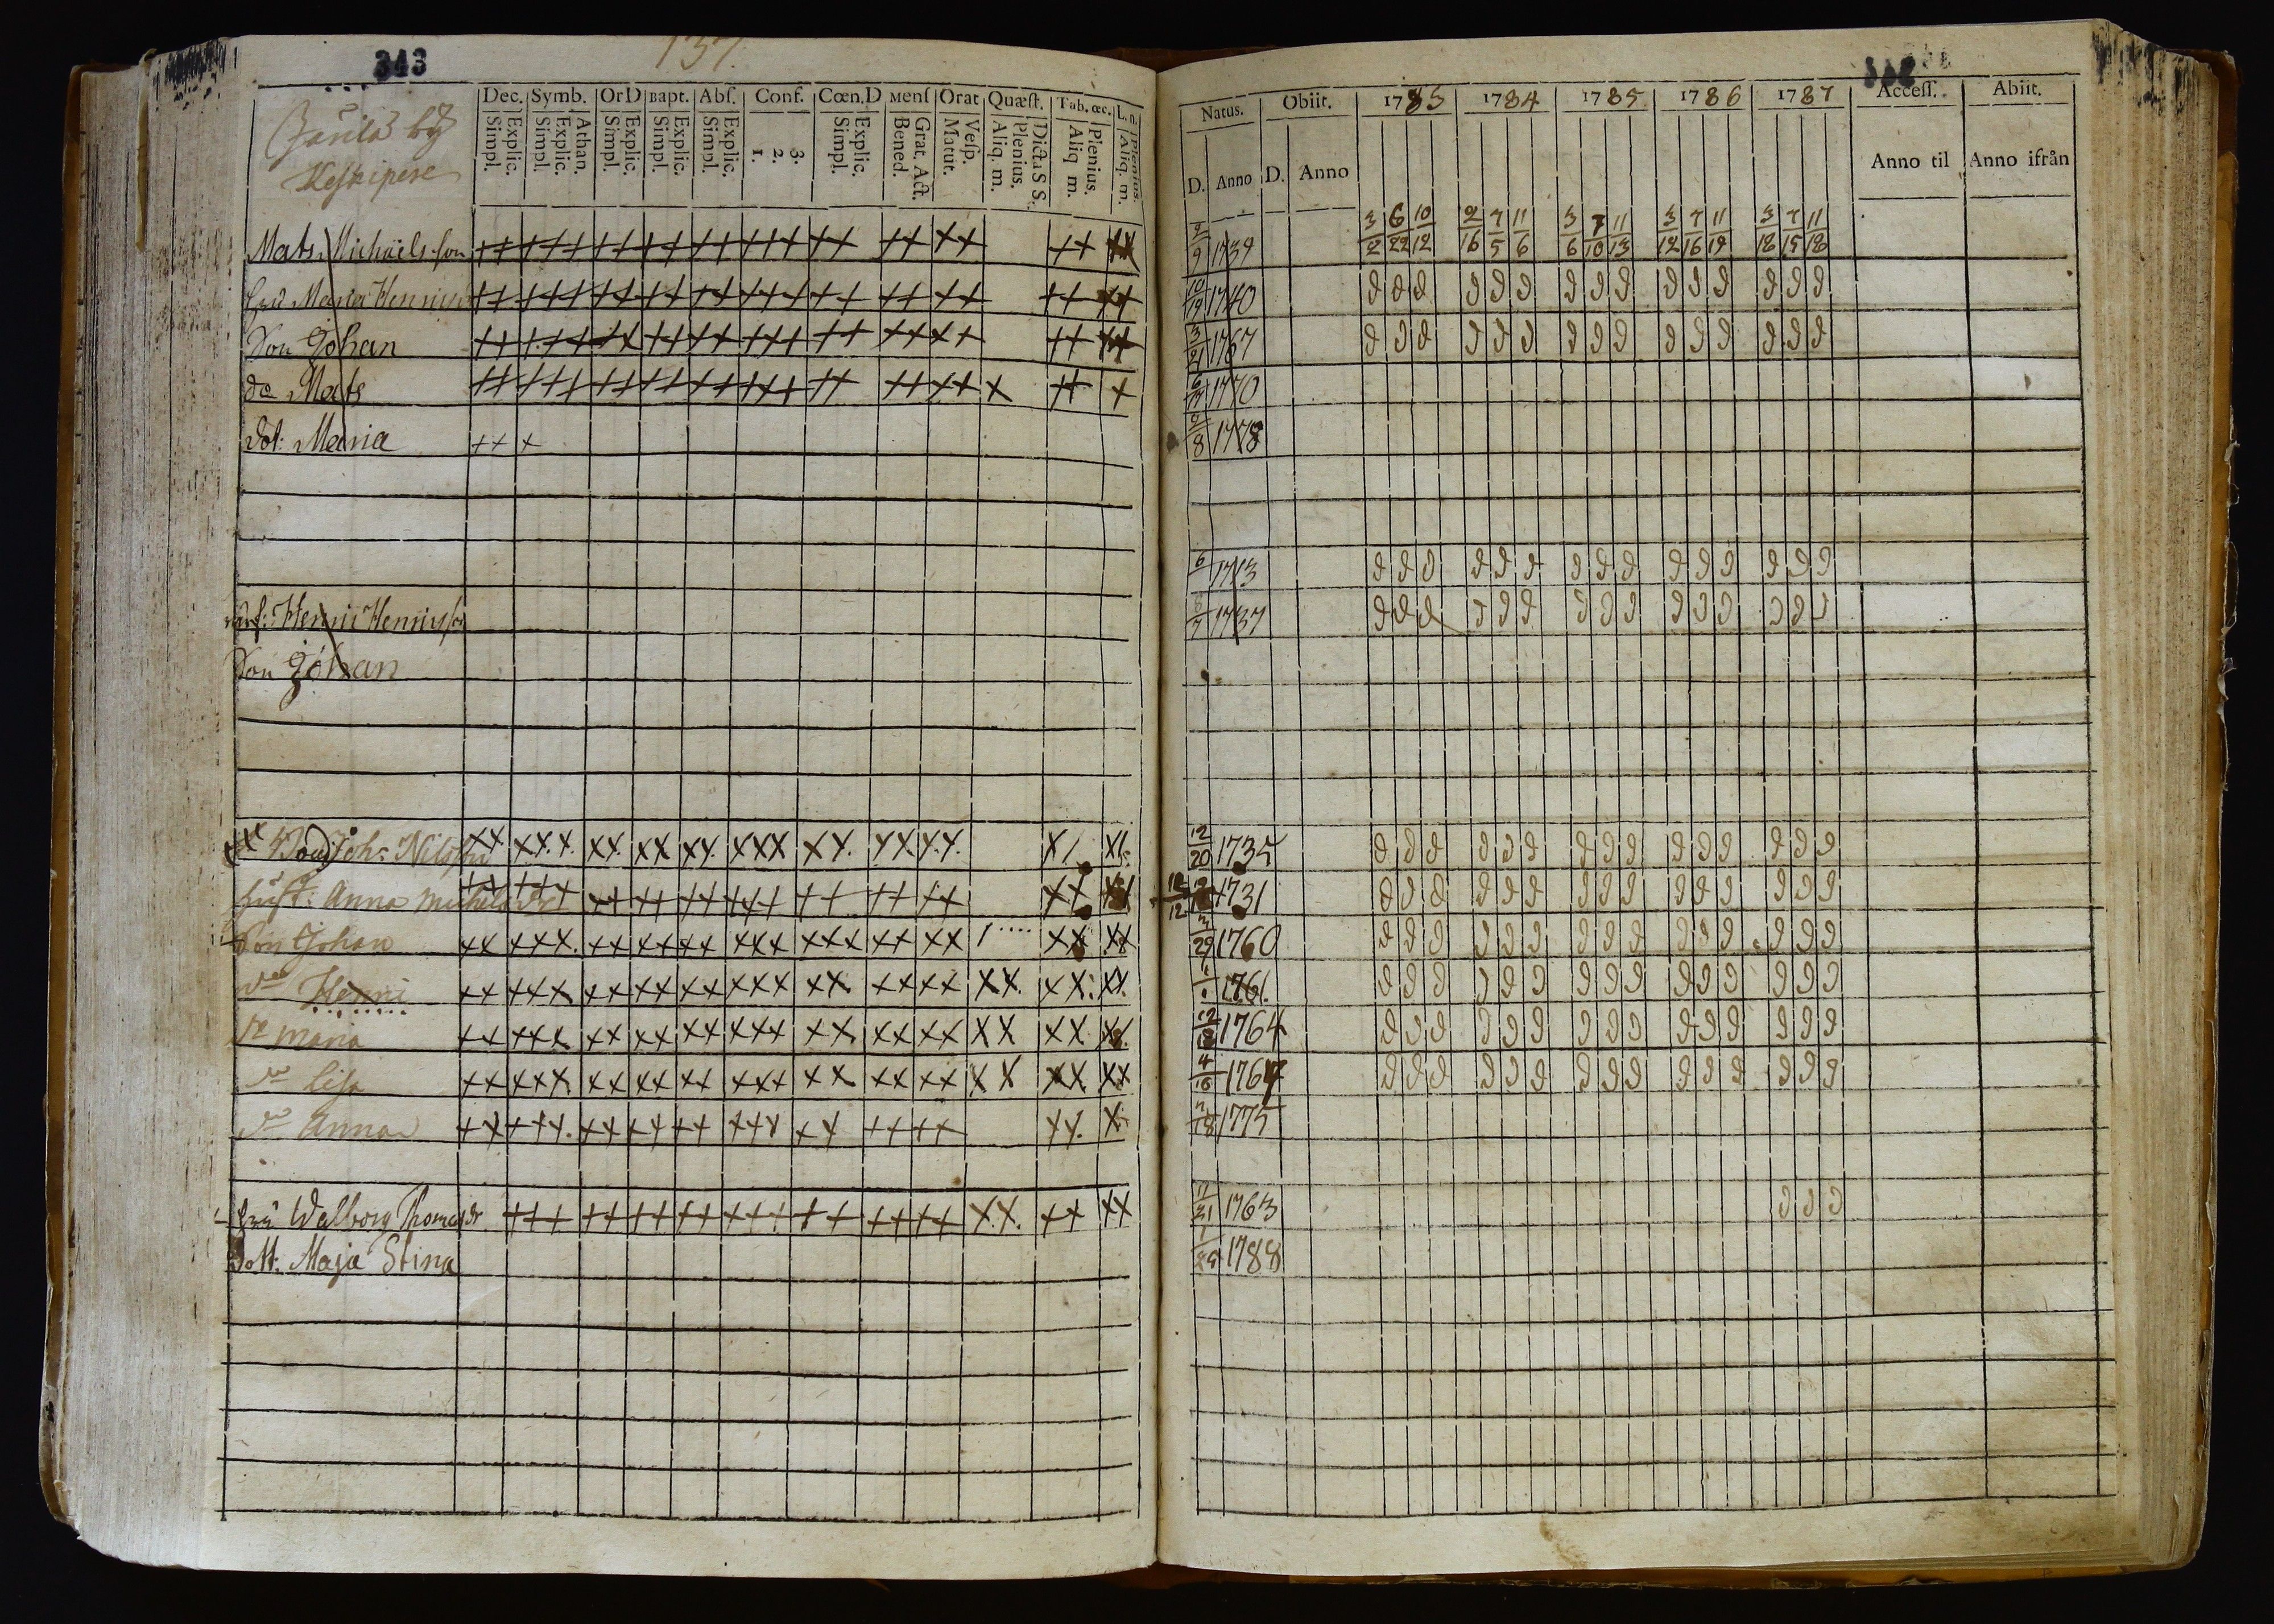 343
137.
Dec. Symb. OrD Bapt. Abſ. Conf. Cœn.D Menſ Orat Quæſt. Tab. œc. L. n.
Explic. Simpl. Athan. Explic. Simpl. Explic. Simpl. Explic. Simpl. Explic. Simpl. 3. 2. 1. Explic. Simpl. Grat. Act. Bened. Veſp. Matut. Dicta S S. Plenius. Aliq. m. Plenius. Aliq m. Plenius. Aliq. m.
by
Keskipere
Natus. Obiit. 1783 1784 1785 1786 1787 Acceſſ. Abiit.
D. Anno D. Anno Anno til Anno ifrån
3/2 6/22 10/12 2/16 7/5 11/6 3/6 7/10 11/13 3/12 7/16 11/19 3/18 7/15 11/18
Mats Michaëls son ++ +++ ++ ++ ++ +++ ++ ++ ++ ++ 2/9 1739
Maria Henrics ++ +++ ++ ++ ++ +++ ++ ++ ++ ++ ++ 10/19 1740 ∂ ∂ ∂ ∂ ∂ ∂ ∂ ∂ ∂ ∂ ∂ ∂ ∂ ∂ ∂
Son Johan ++ +++ ++ ++ ++ +++ ++ ++ ++ ++ 3/21 1767 ∂ ∂ ∂ ∂ ∂ ∂ ∂ ∂ ∂ ∂ ∂ ∂ ∂ ∂ ∂
do Mats ++ +++ ++ ++ ++ +++ ++ ++ ++ + ++ + 1770
dot: Maria ++ + 2/8 1778
6 1713 ∂ ∂ ∂ ∂ ∂ ∂ ∂ ∂ ∂ ∂ ∂ ∂ ∂ ∂ ∂
Henric Henrics 6/7 1737 ∂ ∂ ∂ ∂ ∂ ∂ ∂ ∂ ∂ ∂ ∂ ∂ ∂ ∂ ∂
Son Johan
Joh: Nilsson xx xx.x. xx. xx xy. xxx xy. yx y.y. x/ x/. 12/20 1735 ∂ ∂ ∂ ∂ ∂ ∂ ∂ ∂ ∂ ∂ ∂ ∂ ∂ ∂ ∂
hust: Anna Michelsdr ++ +++ ++ ++ ++ +++ ++ ++ ++ ++ 1731 ∂ ∂ ∂ ∂ ∂ ∂ ∂ ∂ ∂ ∂ ∂ ∂ ∂ ∂ ∂
Son Johan xx xxx. xx xx xx xxx xxx xx xx / .... xx xx 1760 ∂ ∂ ∂ ∂ ∂ ∂ ∂ ∂ ∂ ∂ ∂ ∂ ∂ ∂ ∂
do Henric xx xxx xx xx xx xxx xx. xx xx xx. xx. xx. 1761. ∂ ∂ ∂ ∂ ∂ ∂ ∂ ∂ ∂ ∂ ∂ ∂ ∂ ∂ ∂
do Maria xx xxx xx xx xx xxx xx xx xx xx xx 1764 ∂ ∂ ∂ ∂ ∂ ∂ ∂ ∂ ∂ ∂ ∂ ∂ ∂ ∂ ∂
do Lisa xx xxx xx xx xx xxx xx xx xx xx xx xx 1767 ∂ ∂ ∂ ∂ ∂ ∂ ∂ ∂ ∂ ∂ ∂ ∂ ∂ ∂ ∂
do Anna xx xxx. xx xx xx xxx xx xx xx xx. x 1775
hu Walborg Thomasdr +++ ++ ++ ++ +++ ++ ++ ++ xx. ++ xx 1763 ∂ ∂ ∂
Dott. Maja Stina 1788